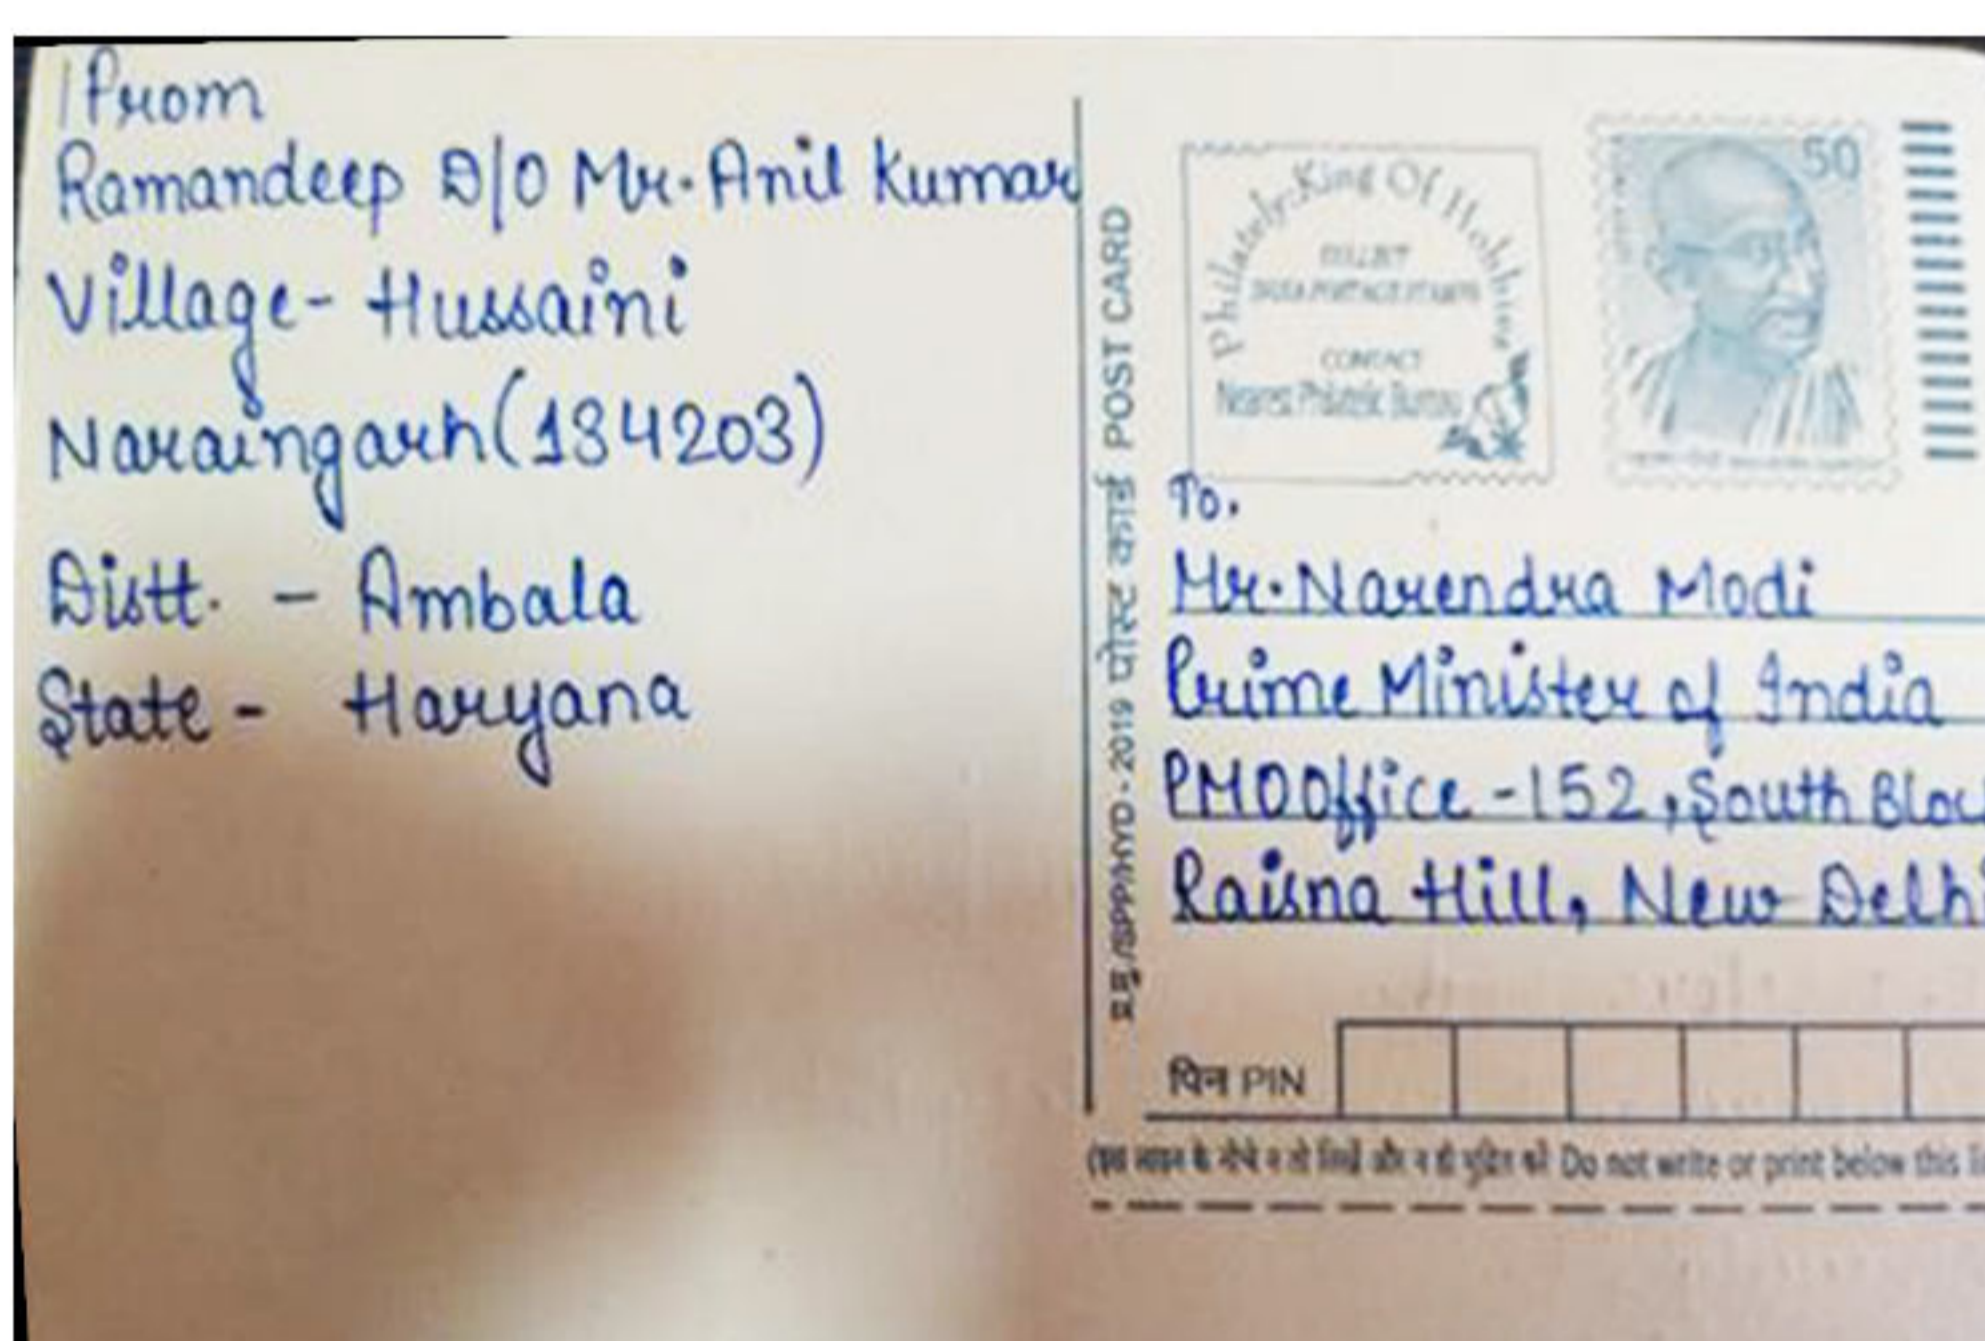 From
Ramandeep D/O Mr. Anil Kumar
Village- Hussaini
Naraingarh(134203)
Distt. - Ambala
State - Haryana
प्र.मु./ISPP/HYD - 2019 पोस्ट कार्ड POST CARD
Philately: King Of Hobbies
COLLECT
INDIA POSTAGE STAMPS
CONTACT
Nearest Philatelic Bureau
50
To.
Mr. Narendra Modi
Prime Minister of India
PMO Office -152, South Bloc
Raisna Hill, New Delhi
पिन PIN
(इस लाइन के नीचे न तो लिखें और न ही मुद्रित करें Do not write or print below this li